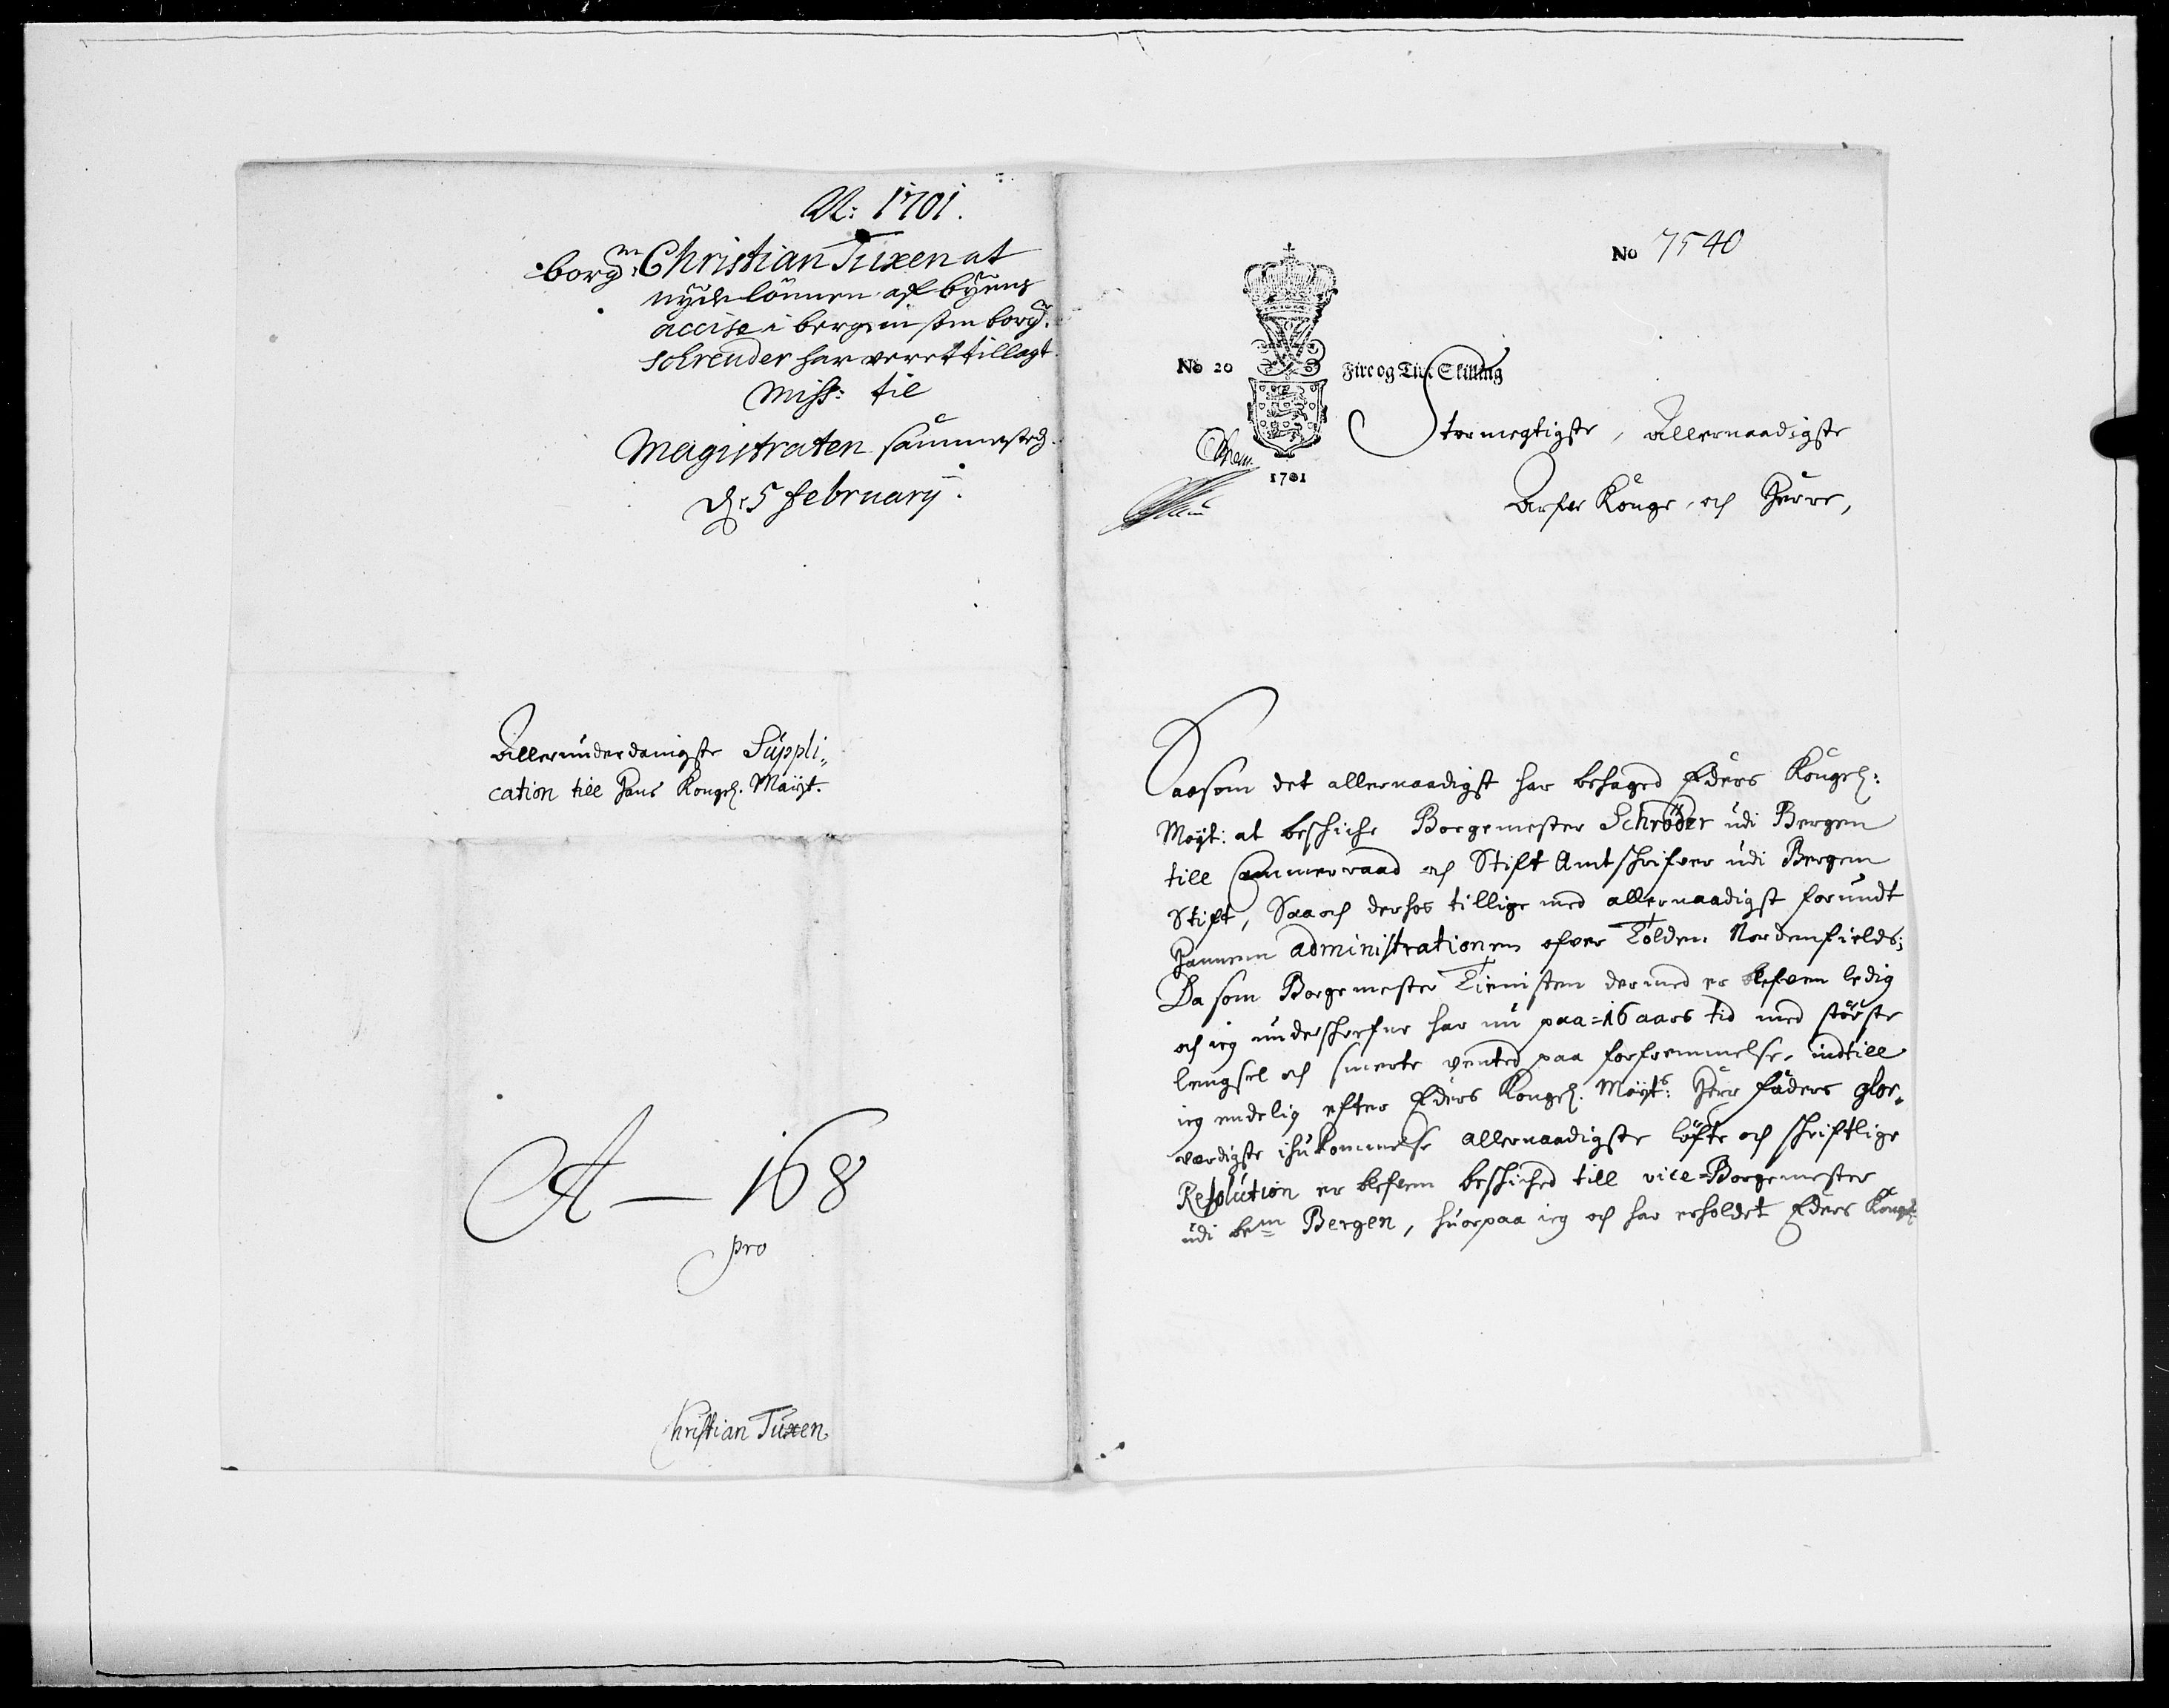 A: 1701.
borgm: Christian Tuxen at
nyde lönnen af byens
accise i bergen som borg:
schreuder har veret tillagt
Miss: til
Magistraten sammested
d: 5 february.
Allerunderdanigste Suppli„
cation till Hans Kongel. Mayt.
A — 168
pro
Christian Tuxen
No 7540
No 20 Fire og Tive Skilling
1701
Stormegtigste, Allernaadigste
Arfve Konge, och Herre,
Saasom det allernaadigst har behaged Eders Kongel:
Mayt: at beschiche Borgemester Schröder udi Bergen
till Cammerraad och Stift Amtschrifver udi Bergen
Stift, Saa och derhos tillige med allernaadigst forundt
Hannem administrationen ofver Tolden Nordenfields;
Da som Borgemester Tienisten dermed er blefven ledig
och ieg underschrefne har nu paa=16 aars tid med störste
lengsel och smerte vented paa forfremmelse, indtill
ieg endelig efter Eders Kongel. Mayts: Herr faders glor„
værdigste ihukommelse allernaadigste löfte och schriftlige
Resolution er blefven beschiched till vice=Borgemester
udi bem Bergen, huorpaa ieg och har erholdet Eders Kongl: